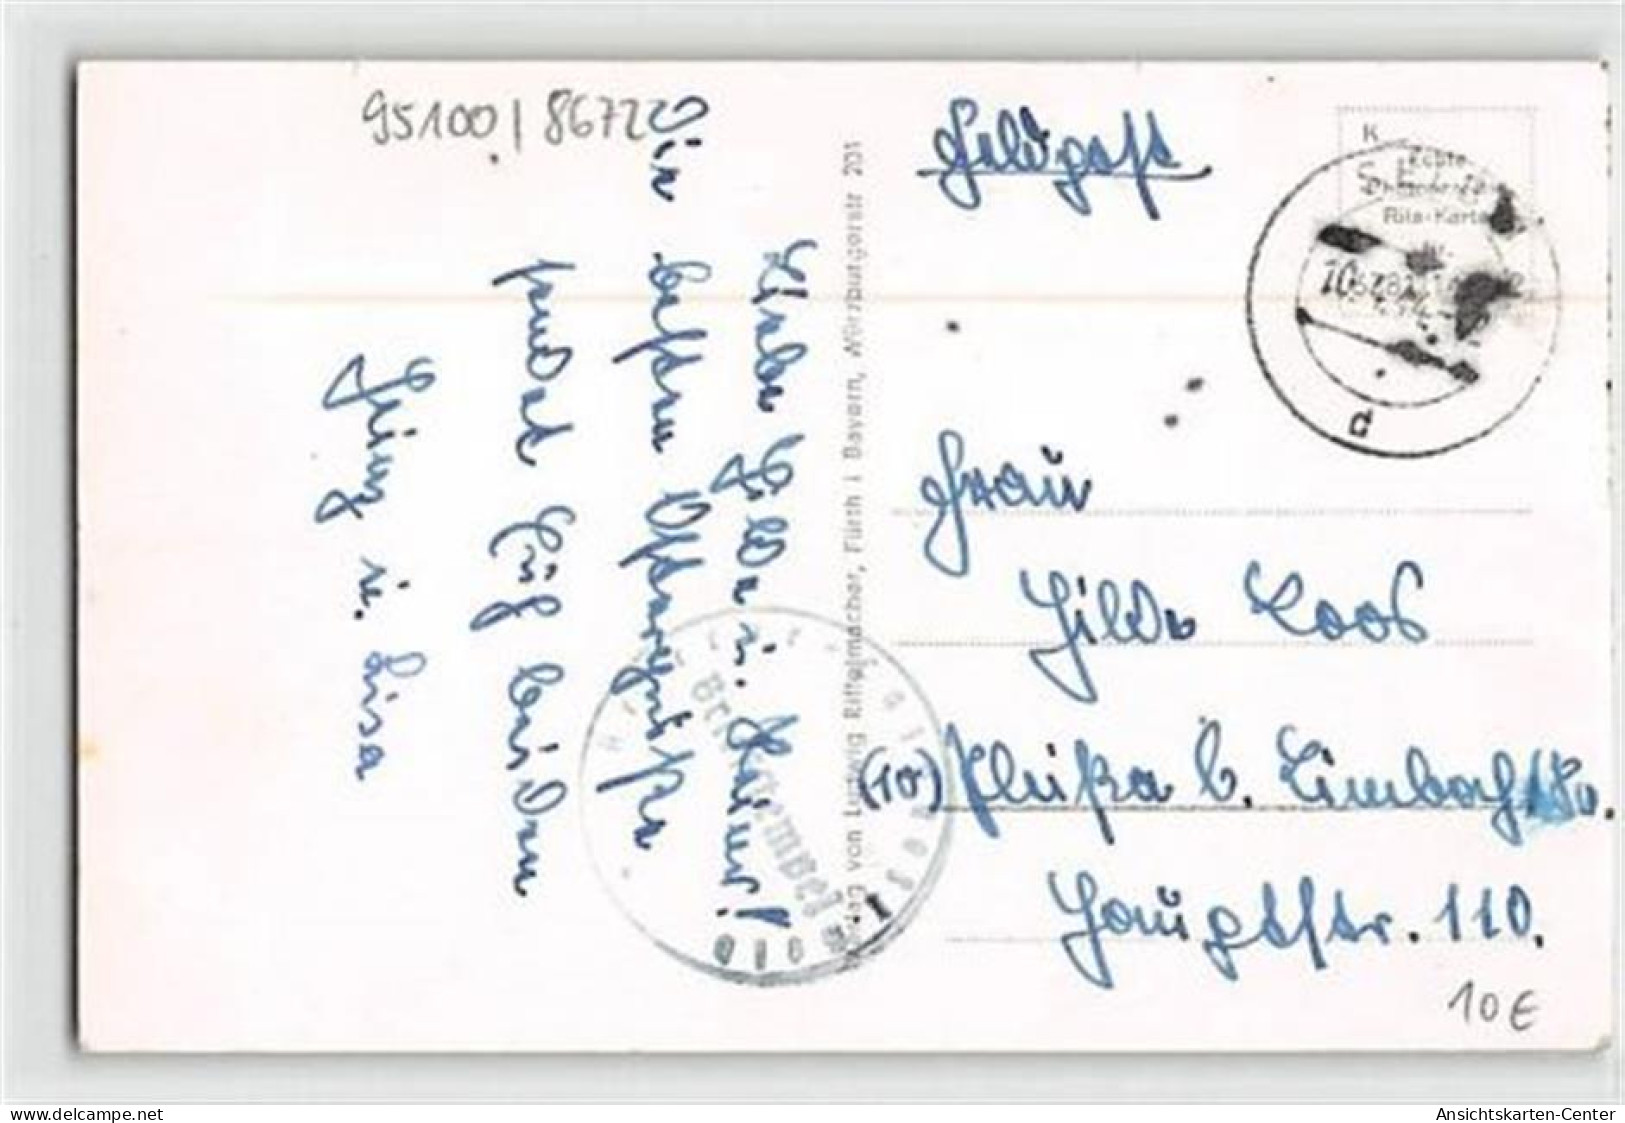 95100 / 86722
Liebe Hilde u. Heiner!
Die besten Ostergrüße
sendet Euch beiden
Heinz u. Lisa
Verlag von Ludwig Riffelmacher, Fürth i Bayern, Würzburgerstr 201
Feldpost
K
Echte
Rila-Karte
d
Briefstempel
Frau
Hilde Loos
(10) Pleißa b. Limbach/Sa.
Hauptstr. 110.
10 €
www.delcampe.net
Ansichtskarten-Center